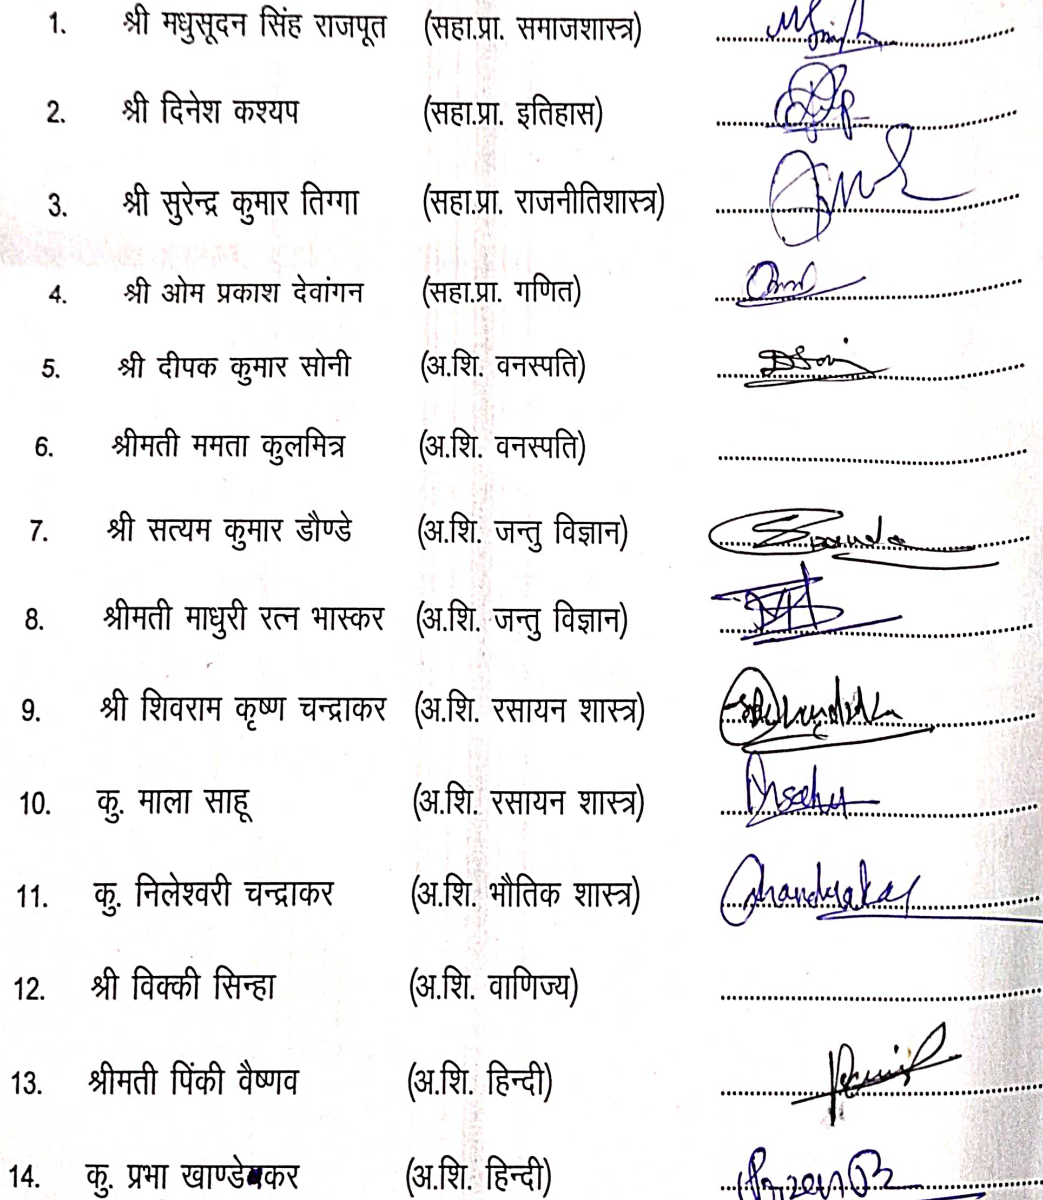 1. श्री मधुसूदन सिंह राजपूत (सहा.प्रा. समाजशास्त्र)
2. श्री दिनेश कश्यप (सहा.प्रा. इतिहास)
3. श्री सुरेन्द्र कुमार तिग्गा (सहा.प्रा. राजनीतिशास्त्र)
4. श्री ओम प्रकाश देवांगन (सहा.प्रा. गणित)
5. श्री दीपक कुमार सोनी (अ.शि. वनस्पति) DSoni
6. श्रीमती ममता कुलमित्र (अ.शि. वनस्पति)
7. श्री सत्यम कुमार डौण्डे (अ.शि. जन्तु विज्ञान)
8. श्रीमती माधुरी रत्न भास्कर (अ.शि. जन्तु विज्ञान)
9. श्री शिवराम कृष्ण चन्द्राकर (अ.शि. रसायन शास्त्र)
10. कु. माला साहू (अ.शि. रसायन शास्त्र) Msahu
11. कु. निलेश्वरी चन्द्राकर (अ.शि. भौतिक शास्त्र) Chandrakar
12. श्री विक्की सिन्हा (अ.शि. वाणिज्य)
13. श्रीमती पिंकी वैष्णव (अ.शि. हिन्दी)
14. कु. प्रभा खाण्डेकर (अ.शि. हिन्दी)